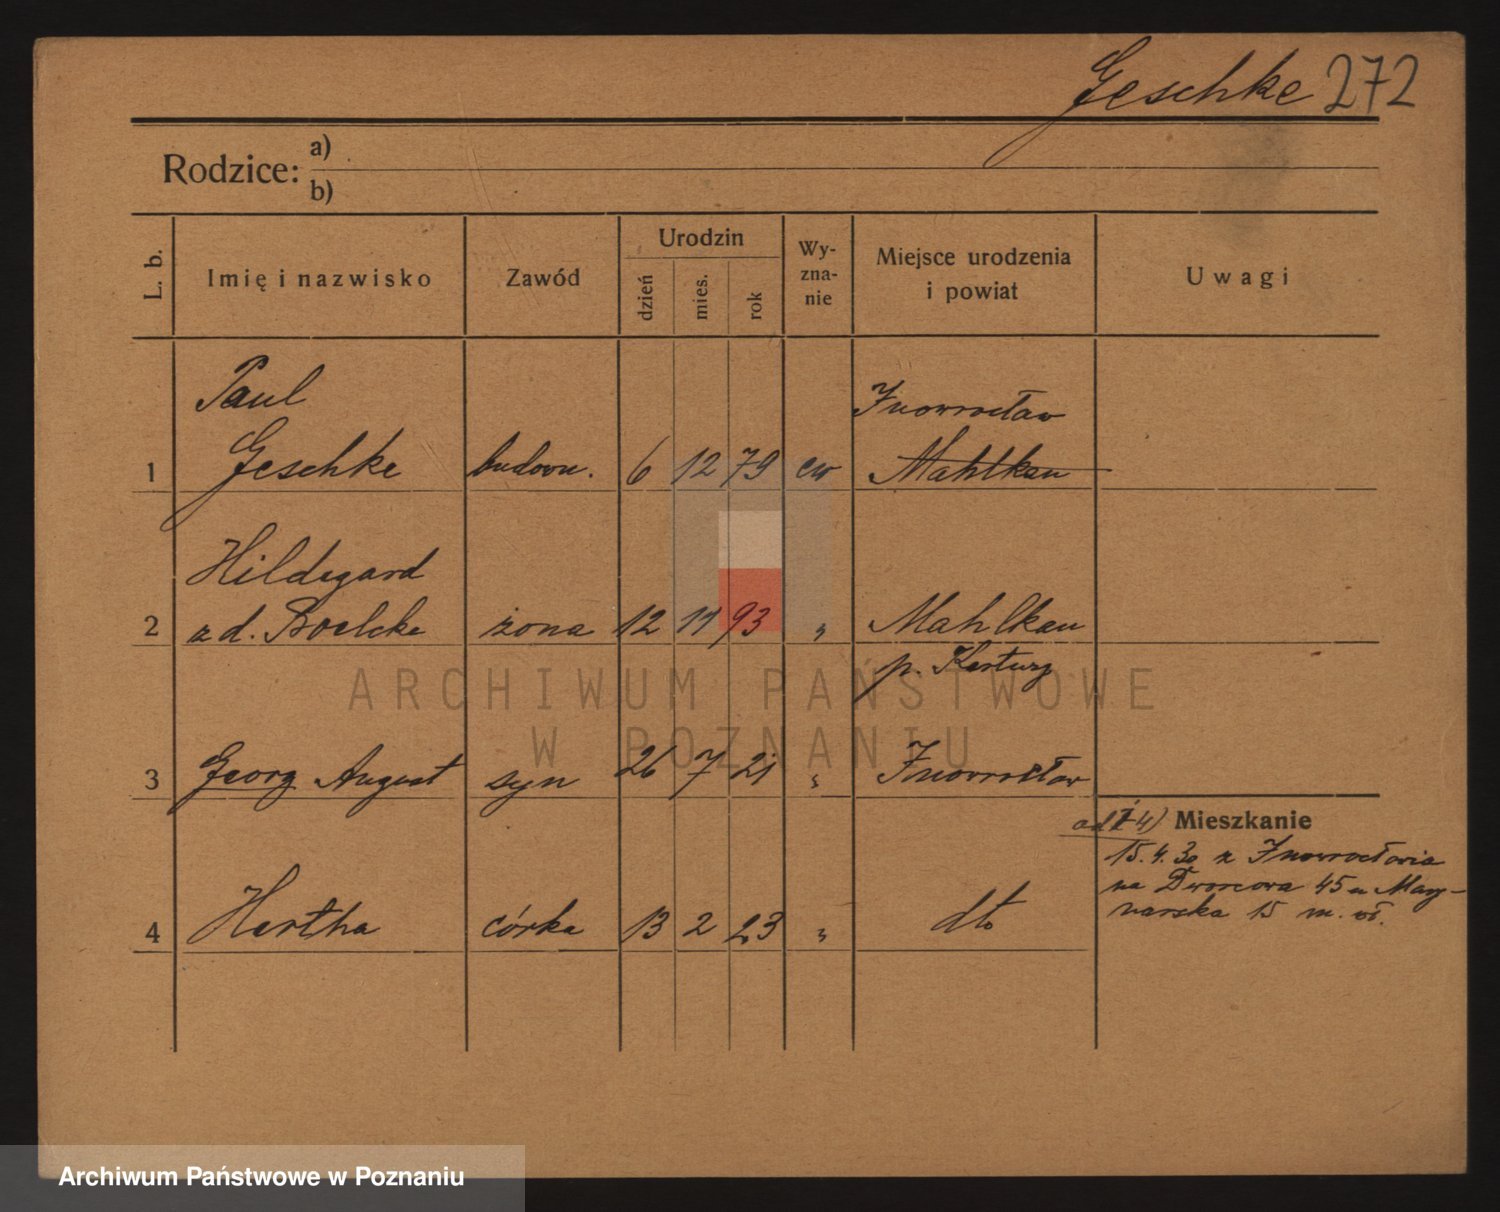 Geschke 272
Rodzice: a)
b)
L. b.
Imię i nazwisko
Zawód
Urodzin
dzień
mies.
rok
Wy-
zna-
nie
Miejsce urodzenia
i powiat
Uwagi
Paul
Inowrocław
1 Geschke budown. 6 12 79 ew Mahlkau
Hildegard
2 z d. Boelcke żona 12 11 93 „ Mahlkau
p. Kartuzy
ARCHIWUM PAŃSTWOWE
W POZNANIU
3 Georg August syn 26 7 21 „ Inowrocław
od 1-4) Mieszkanie
15.4.30 z Inowrocławia
na Dworcowa 45 u Mary-
narska 15 m. wł.
4 Hertha córka 13 2 23 „ dto
Archiwum Państwowe w Poznaniu